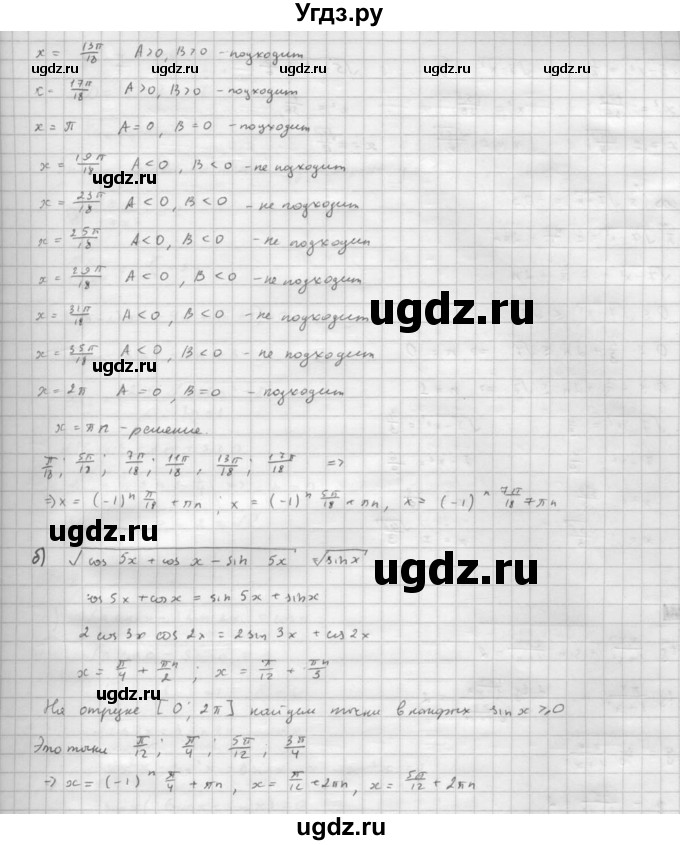 Угдз.ру
x = 13π/18   A>0, B>0 - подходит
ugdz.ru ugdz.ru ugdz.ru
x = 17π/18   A>0, B>0 - подходит
x = π   A=0, B=0 - подходит
x = 19π/18   A<0 B<0 - не подходит
ugdz.ru
x = 23π/18   A<0, B<0 - не подходит
x = 25π/18   A<0, B<0 - не подходит
x = 29π/18   A<0, B<0 - не подходит
x = 31π/18   A<0, B<0 - не подходит
ugdz.ru
x = 35π/18   A<0, B<0 - не подходит
ugdz.ru
x = 2π   A=0, B=0 - подходит
x = πn - решение.
π/18; 5π/18; 7π/18; 11π/18, 13π/18; 17π/18 =>
=> x = (-1)^n π/18 + πn; x = (-1)^n 5π/18 + πn, x = (-1)^n 7π/18 + πn
ugdz.ru ugdz.ru ugdz.ru
б) √cos 5x + cos x - sin 5x = √sin x
ugdz.ru
cos 5x + cos x = sin 5x + sin x
2 cos 3x cos 2x = 2 sin 3x + cos 2x
x = π/4 + πn/2; x = π/12 + πn/3
ugdz.ru
На отрезке [0; 2π] найдем точки в которых sin x ≥ 0
Это точки π/12; π/4; 5π/12, 3π/4
ugdz.ru
-> x = (-1)^n π/4 + πn, x = π/12 + 2πn, x = 5π/12 + 2πn
ugdz.ru